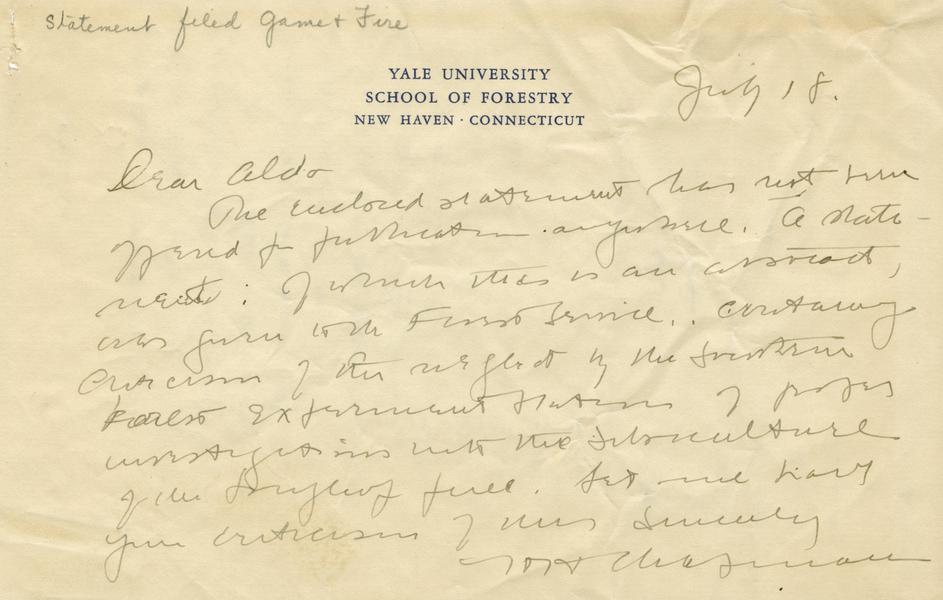 Statement filed Game & Fire
YALE UNIVERSITY
SCHOOL OF FORESTRY
NEW HAVEN · CONNECTICUT
July 18.
Dear Aldo
The enclosed statement has not been
offered for publication anywhere. A state-
ment: of which this is an abstract,
was given to the Forest Service.. containing
Criticism of the neglect by the Southern
Forest Experiment Station of proper
investigations into the silviculture
of the longleaf pine. Let me have
your criticism of this Sincerely
HH Chapman